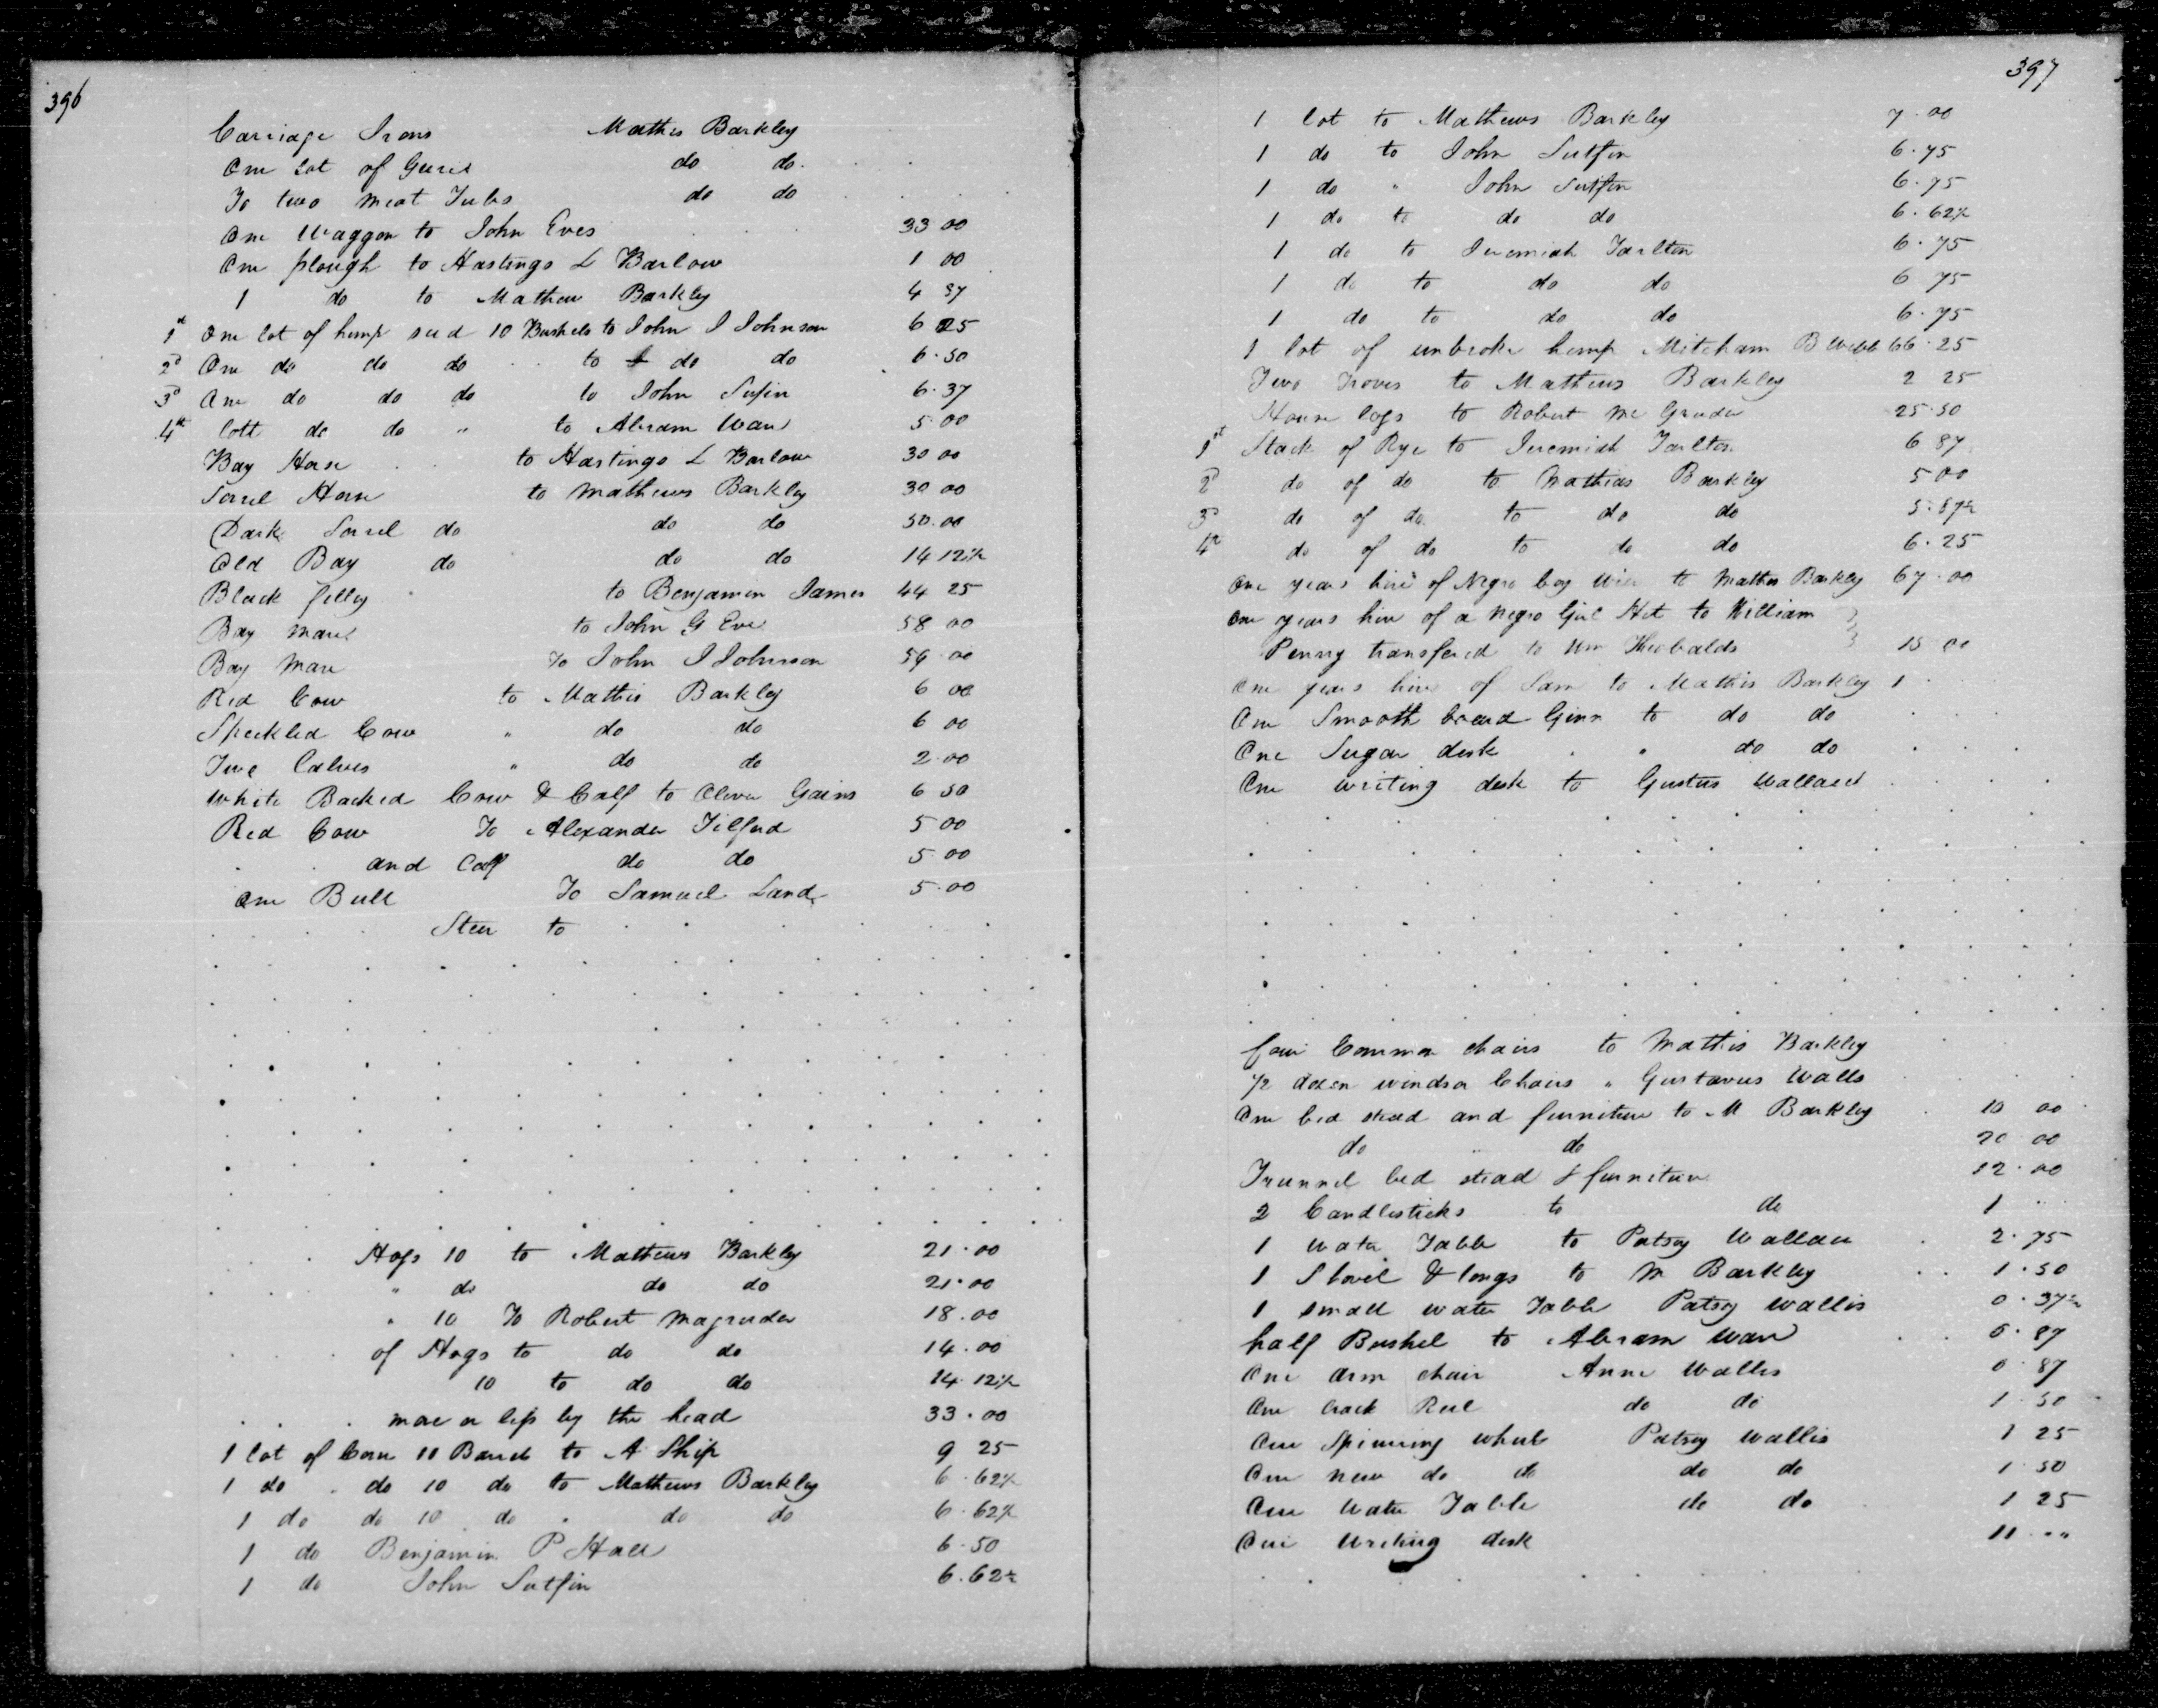 396
Carriage Irons Mathis Barkley
One Lot of Gures do do
To two meat Tubs do do
One Waggon to John Eves 33 00
One plough to Hastings L Barlow 1 00
1 do to Mathew Barkley 4 37
1st One lot of hemp seed 10 Bushels to John I Johnson 6 25
2d One do do do to do do 6.50
3d One do do do to John Sutfin 6.37
4th lott do do " to Abram Wan 5.00
Bay Horse to Hastings L Barlow 30 00
Sorrel Horse to Mathews Barkley 30 00
Dark Sorrel do do do 50.00
Old Bay do do do 14 12½
Black filley to Benjamin James 44 25
Bay mare to John G Eve 58 00
Bay Mare To John I Johnson 59.00
Red Cow to Mathis Barkley 6 00
Speckled Cow " do do 6 00
Two Calves " do do 2.00
White Backed Cow & Calf to Oliver Gains 6 50
Red Cow To Alexander Tilford 5 00
and Calf do do 5.00
One Bull To Samuel Land 5.00
Steer to
Hogs 10 to Mathews Barkley 21.00
" do do do 21.00
" 10 To Robert Magruder 18.00
of Hogs to do do 14.00
10 to do do 14.12½
more or less by the head 33.00
1 lot of Corn 10 Barrels to A Ship 9 25
1 do do 10 do to Mathews Barkley 6.62½
1 do do 10 do " do do 6.62½
1 do Benjamin P Hall 6.50
1 do John Sutfin 6.62½
397
1 lot to Mathews Barkley 7.00
1 do to John Sutfin 6.75
1 do " John Sutfin 6.75
1 do to do do 6.62½
1 do to Jeremiah Tarlton 6.75
1 do to do do 6 75
1 do to do do 6.75
1 lot of unbroke hemp Mitcham B Webb 66.25
Two Troves to Mathews Barkley 2 25
House logs to Robert Mc Gruder 25.50
1st Stack of Rye to Jeremiah Tarlton 6 87
2d do of do to Mathias Barkley 5 00
3d do of do to do do 5.87½
4th do of do to do do 6.25
One years hire of Negro boy Wile to Mathis Barkley 67.00
One years hire of a Negro Girl Het to William
Penny transfered to Wm Theobalds 15 00
One years hire of Sam to Mathis Barkley 1
One Smooth board Ginn to do do
One Sugar desk " do do
One writing desk to Gustus Wallace
four Common chairs to Mathis Barkley
½ dozen windsor Chairs " Gustavus Walls
One bed stead and furniture to M Barkley 10 00
do do 20 00
Trunnel bed stead & furniture 12.00
2 Candlesticks to do 1
1 Water Table to Patsy Wallace 2.75
1 Shovel & tongs to M Barkley 1.50
1 small water Table Patsy Wallis 0.37½
half Bushel to Abram Wan 0.87
One arm chair Anne Wallis 0.87
One Crack Reel do do 1.50
One Spinning wheel Patsy Wallis 1 25
One new do do do do 1.50
One Water Table do do 1 25
One Writing desk 11